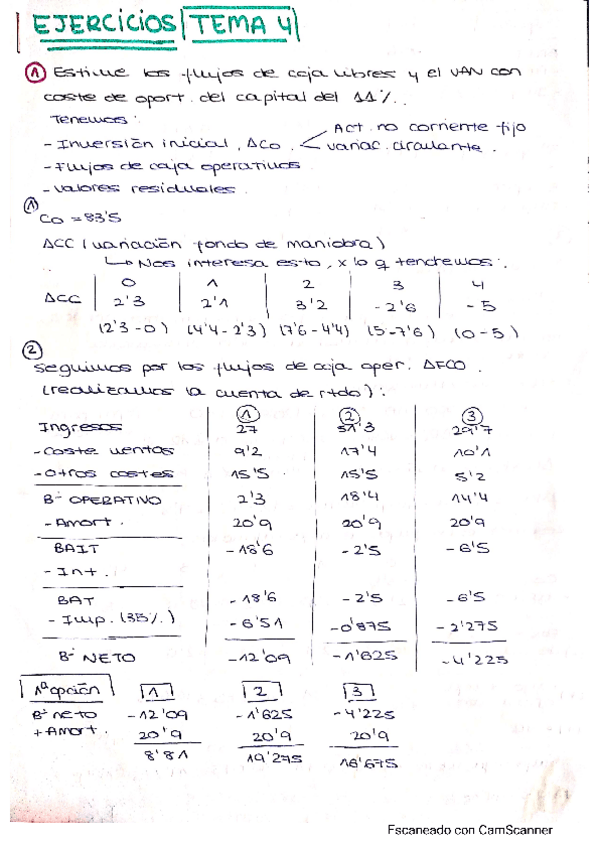 EJERCICIOS TEMA 4
① Estime los flujos de caja libres y el VAN con
coste de oport. del capital del 11%.
Tenemos:
- Inversión inicial, ΔCo. < Act. no corriente fijo
variac. circulante.
- Flujos de caja operativos.
- Valores residuales.
①
Co = 83'5
ΔCC (variación fondo de maniobra)
↳ Nos interesa esto, x lo q tendremos:
0 1 2 3 4
ΔCC 2'3 2'1 3'2 -2'6 -5
(2'3-0) (4'4-2'3) (7'6-4'4) (5-7'6) (0-5)
②
Seguimos por los flujos de caja oper. ΔFCO.
(realizamos la cuenta de rtdo):
① ② ③
Ingresos 27 51'3 29'7
- coste ventas 9'2 17'4 10'1
- otros costes 15'5 15'5 5'2
Bº OPERATIVO 2'3 18'4 14'4
- Amort. 20'9 20'9 20'9
BAIT -18'6 -2'5 -6'5
- Int.
BAT -18'6 -2'5 -6'5
- Imp. (35%) -6'51 -0'875 -2'275
Bº NETO -12'09 -1'625 -4'225
1ª opción 1 2 3
Bº neto -12'09 -1'625 -4'225
+ Amort. 20'9 20'9 20'9
8'81 19'275 16'675
Escaneado con CamScanner